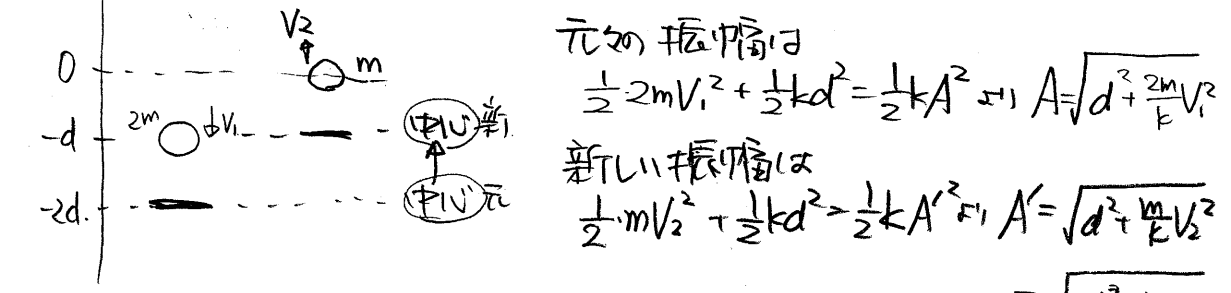 V2
0 m
2m V1 中心 新
-d
-2d. 中心 元
元々の振幅は
1/2・2mV₁² + 1/2kd² = 1/2kA² より A=√(d²+2m/k V₁²)
新しい振幅は
1/2・mV₂² + 1/2kd² = 1/2kA'² より A' = √(d²+m/k V₂²)